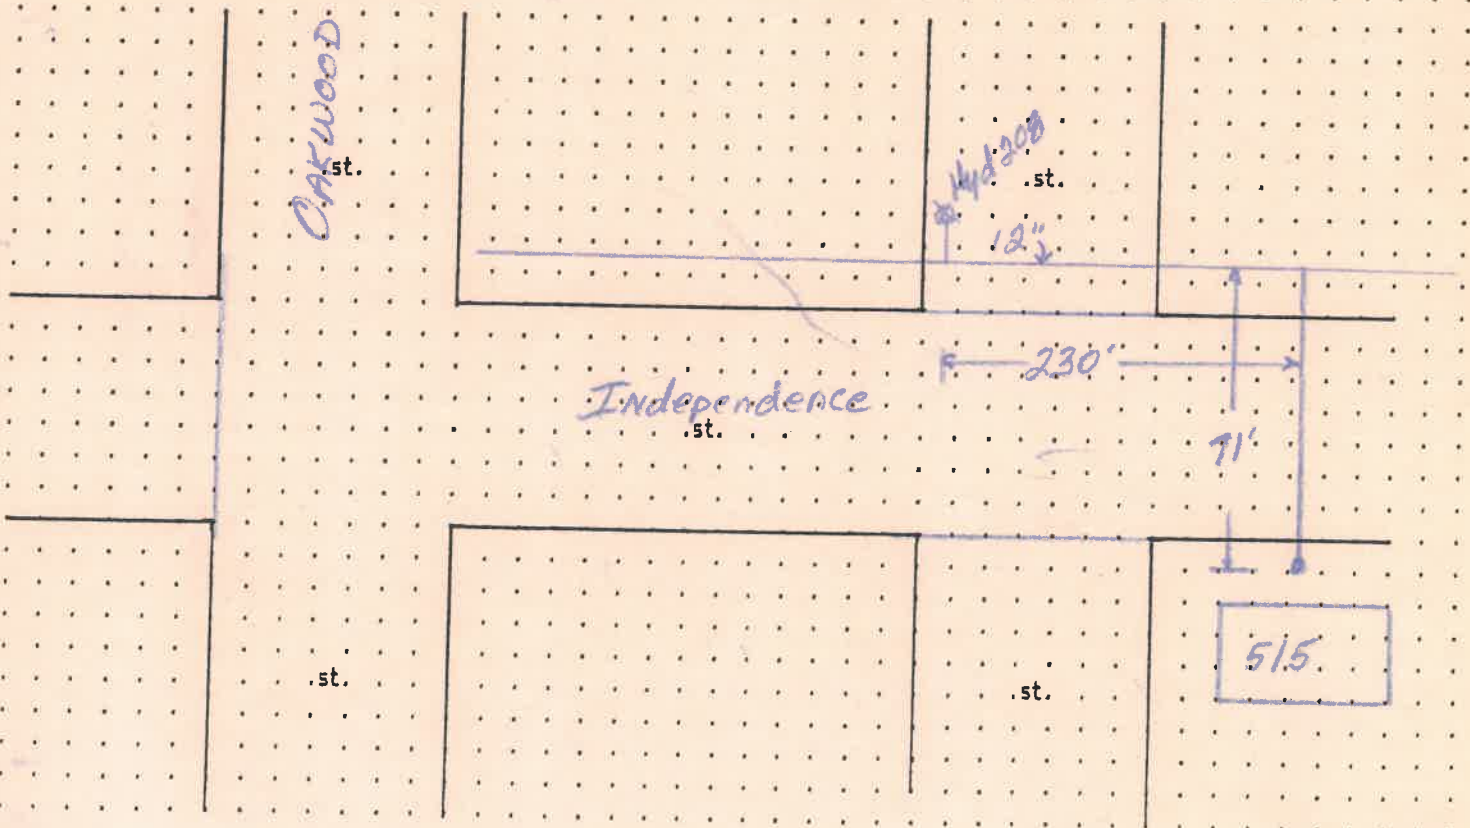 OAKWOOD
st.
Hyd 208
st.
12"
230'
Independence
st.
71'
515
st.
st.